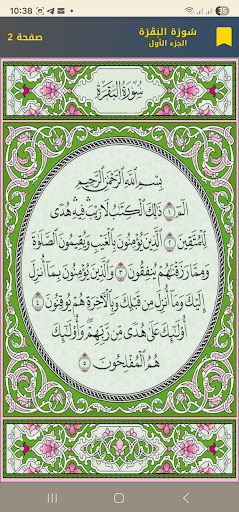 10:38
35
سُورَة البَقَرَة
الجزء الأول
صفحة 2
سُورَةُ البَقَرَةِ
بِسْمِ اللَّهِ الرَّحْمَٰنِ الرَّحِيمِ
الٓمٓ ١ ذَٰلِكَ الْكِتَٰبُ لَا رَيْبَ ۛ فِيهِ ۛ هُدًى
لِّلْمُتَّقِينَ ٢ الَّذِينَ يُؤْمِنُونَ بِالْغَيْبِ وَيُقِيمُونَ الصَّلَوٰةَ
وَمِمَّا رَزَقْنَٰهُمْ يُنفِقُونَ ٣ وَالَّذِينَ يُؤْمِنُونَ بِمَآ أُنزِلَ
إِلَيْكَ وَمَآ أُنزِلَ مِن قَبْلِكَ وَبِالْءَاخِرَةِ هُمْ يُوقِنُونَ ٤
أُو۟لَٰٓئِكَ عَلَىٰ هُدًى مِّن رَّبِّهِمْ ۖ وَأُو۟لَٰٓئِكَ
هُمُ الْمُفْلِحُونَ ٥